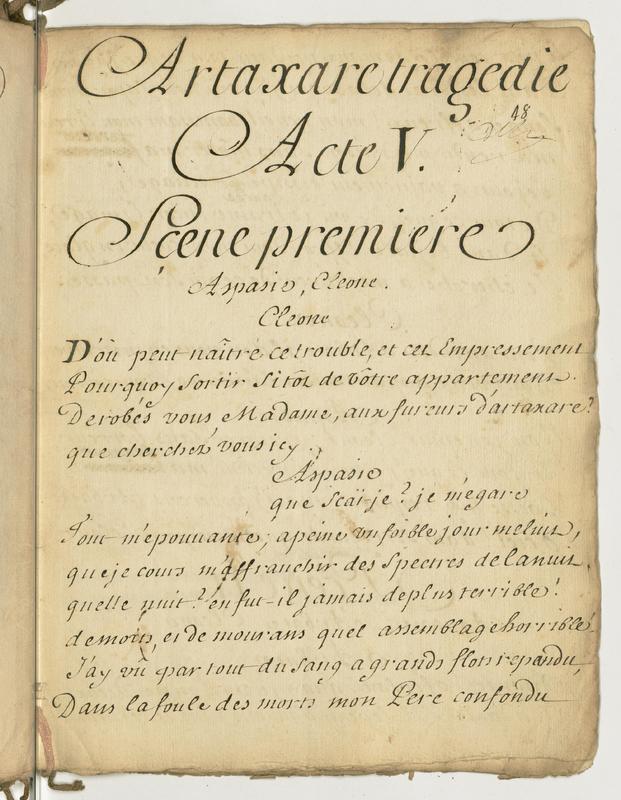 Artaxare tragédie
48
Acte V.
Scene premiere
Aspasie, Cleone.
Cleone
D'où peut naître ce trouble, et cet Empressement
Pourquoy Sortir Sitôt de vôtre appartement.
Derobés vous Madame, aux fureurs d'artaxare?
que cherchez vous icy.
Aspasie
que scai-je? je m'egare
Tout m'epouvante; apeine un foible jour me luit,
que je cours m'affranchir des Spectres de la nuit.
quelle nuit? en fut-il jamais de plus terrible!
de morts, et de mourans quel assemblage horrible!
J'ay vû par tout du sang a grands flots repandu,
Dans la foule des morts mon Pere confondu